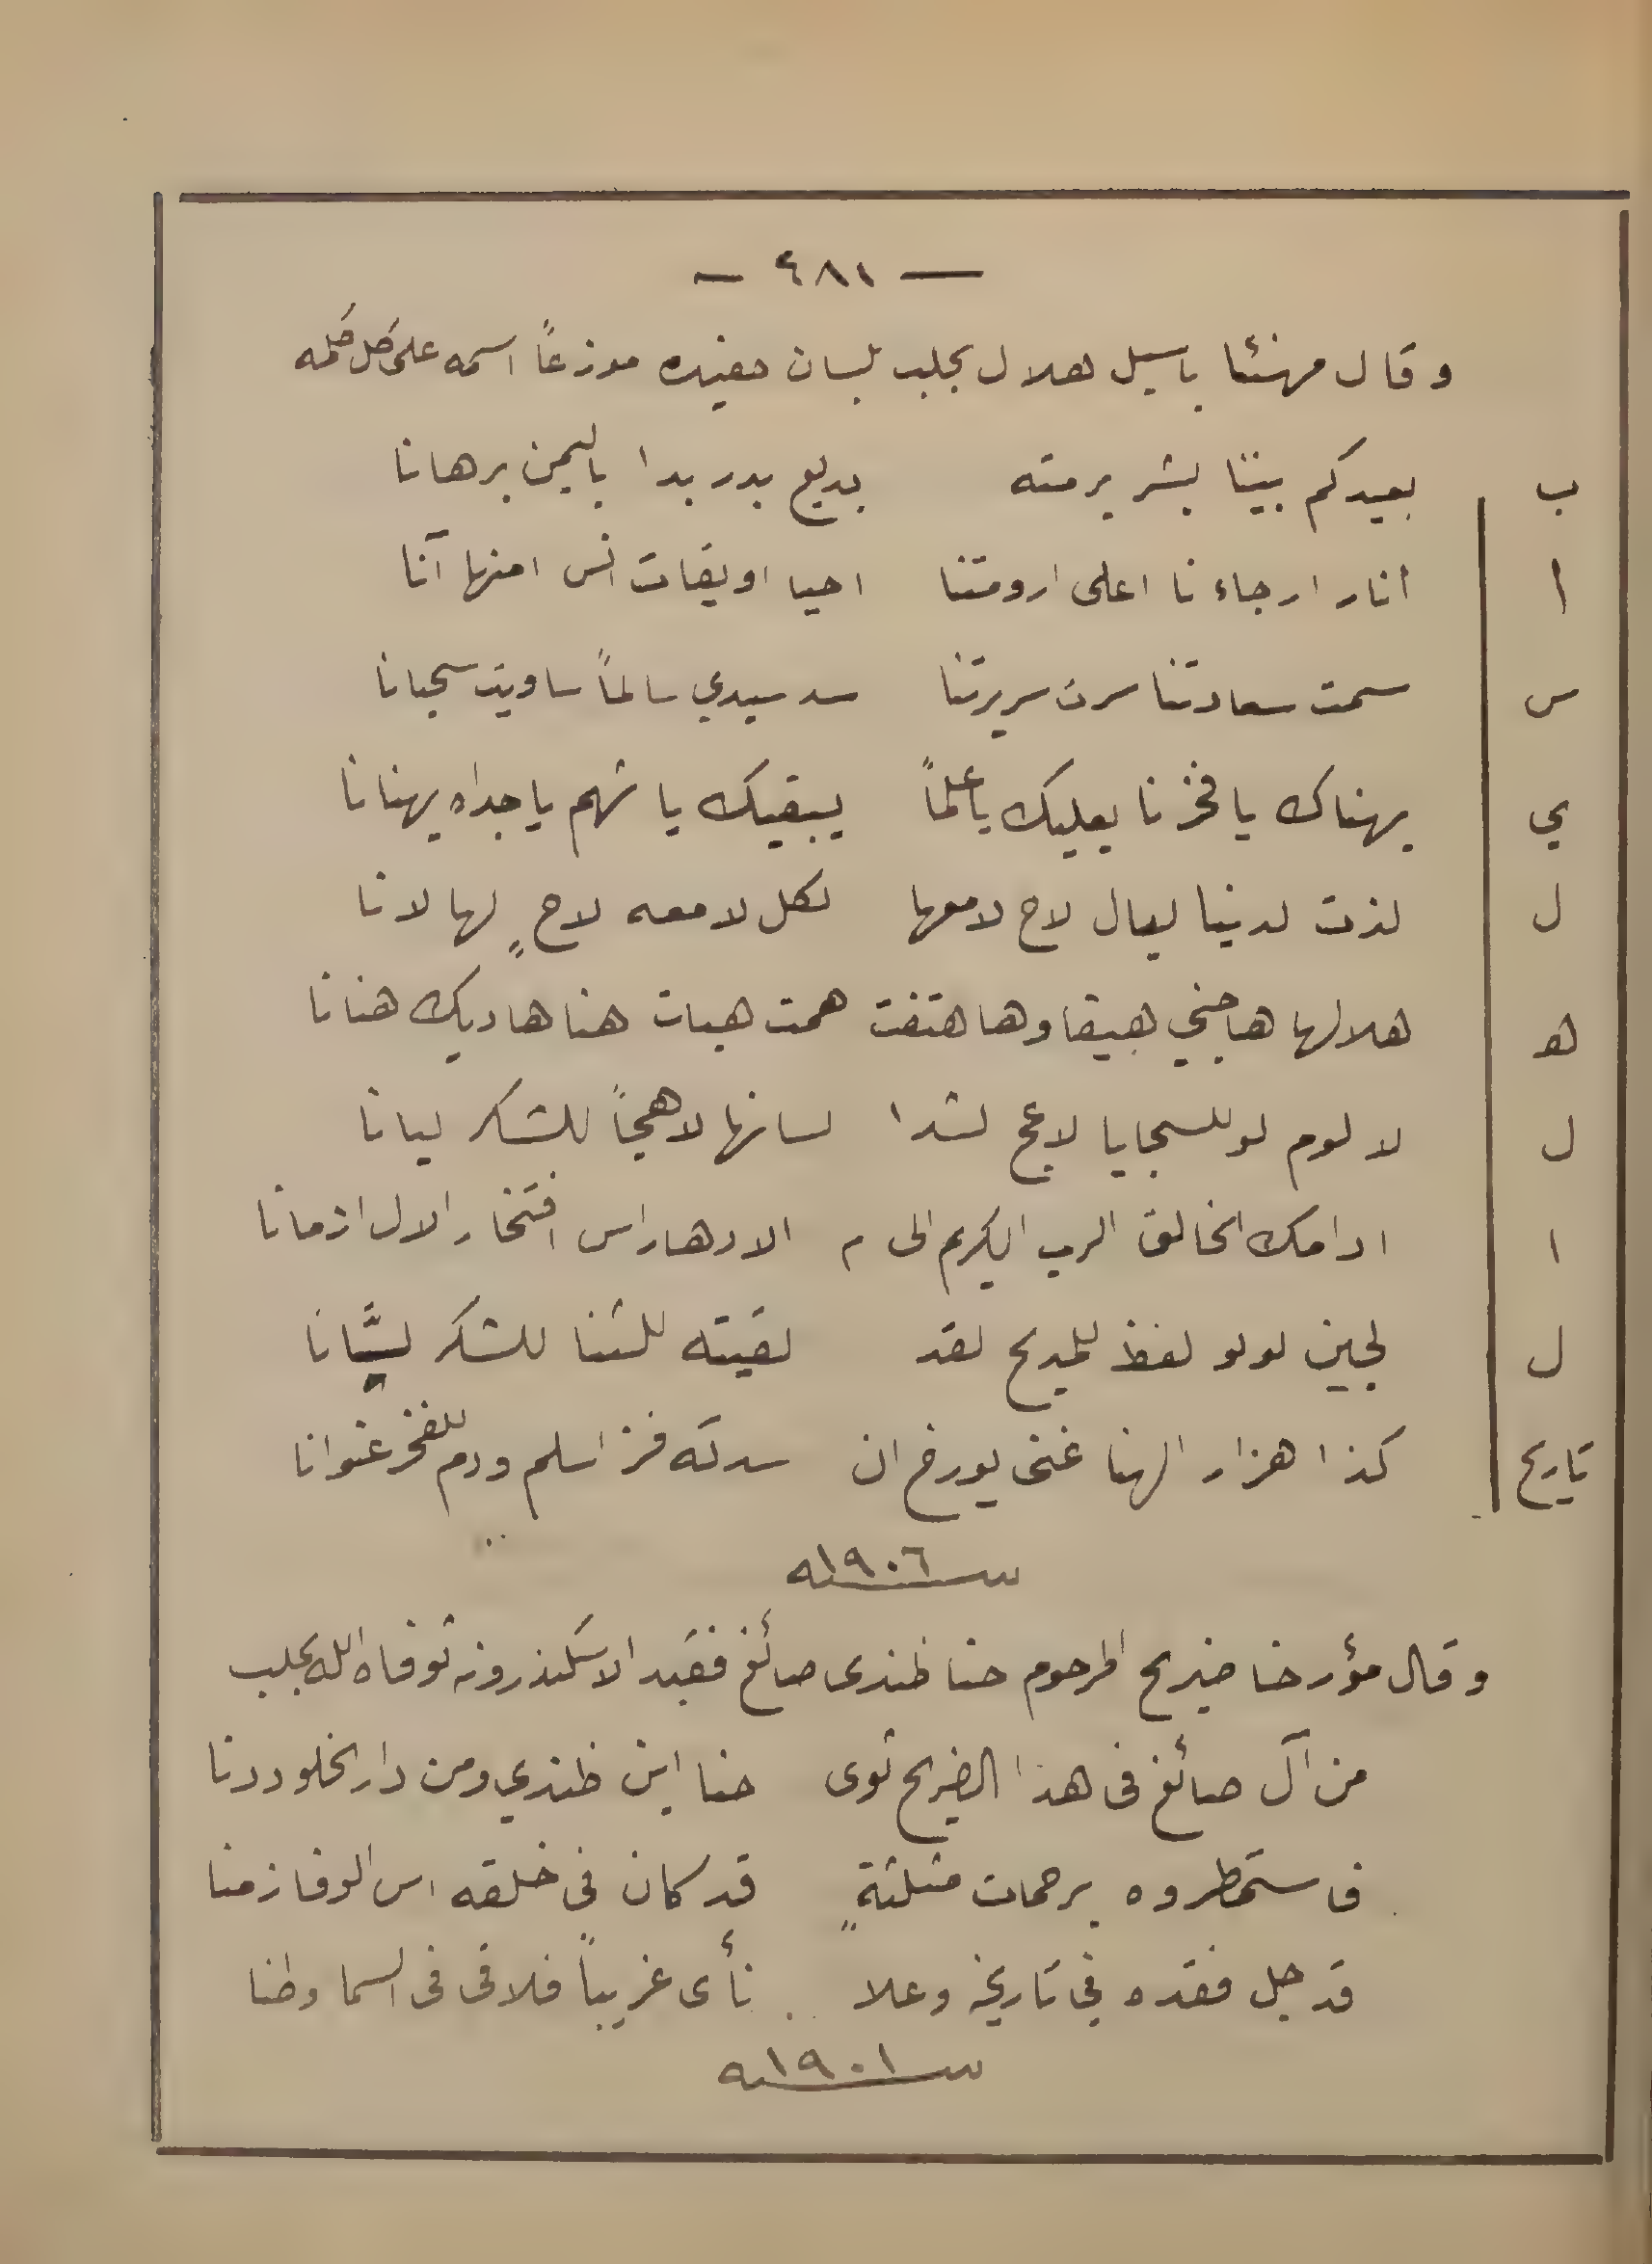 — ٤٨١ —
وقال مهنئا باسيل هلال بحلب بلسان حفيده موزعاً اسمه على كل كلمه
ب بعيدكم بيتنا بشر برمته بديع بدر بدا باليمن برهانا
أ أنار ارجاءنا اعلى ارومتنا احيا اويقات انس امنها آنا
س سمت سعادتنا سرت سريرتنا سد سيدي سالماً ساويت سحبانا
ي يهناك يا فخرنا يعليك يا علماً يبقيك يا شهم يا جداه يهنانا
ل لذت لدينا ليال لاح لامعها لكل لامعه لاحٍ لها لانا
ه هلالها هاجني هيقا وها هتفت همت هبات هنا هاديك هنانا
ل لا لوم لو للسجايا لاعج لشدا لسانها لاهجاً للشكر ليانا
ا ادامك الخالق الرب الكريم الى م الادهار اس افتخار الال ازمانا
ل لجين لولو لفظ للمديح لقد لقيته للثنا للشكر لسَّانا
تاريخ كذا هزار الهنا غنى يورخ ان سدته فز اسلم ودم للفخر عنوانا
سنة ١٩٠٦
وقال مؤرخا ضريح المرحوم حنا ظندى صائغ فقيد الاسكندرونه توفاه الله بحلب
من آل صائغ فى هذا الضريح ثوى حنا ابن ظندي ومن دار الخلود دنا
فاستمطروه برحمات مثلثةٍ قد كان فى خلقه اس الوفا زمنا
قد جل فقده في تاريخه وعلا نأى غريباً فلاقى فى السما وطنا
سنة ١٩٠١